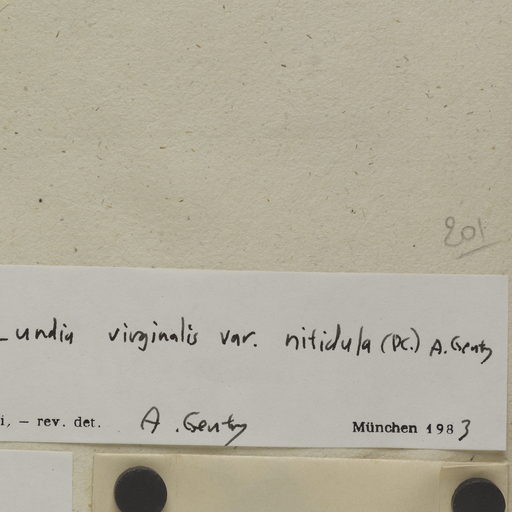 201
Lundia virginalis var. nitidula (DC.) A. Gentry
i, – rev. det. A. Gentry München 1983